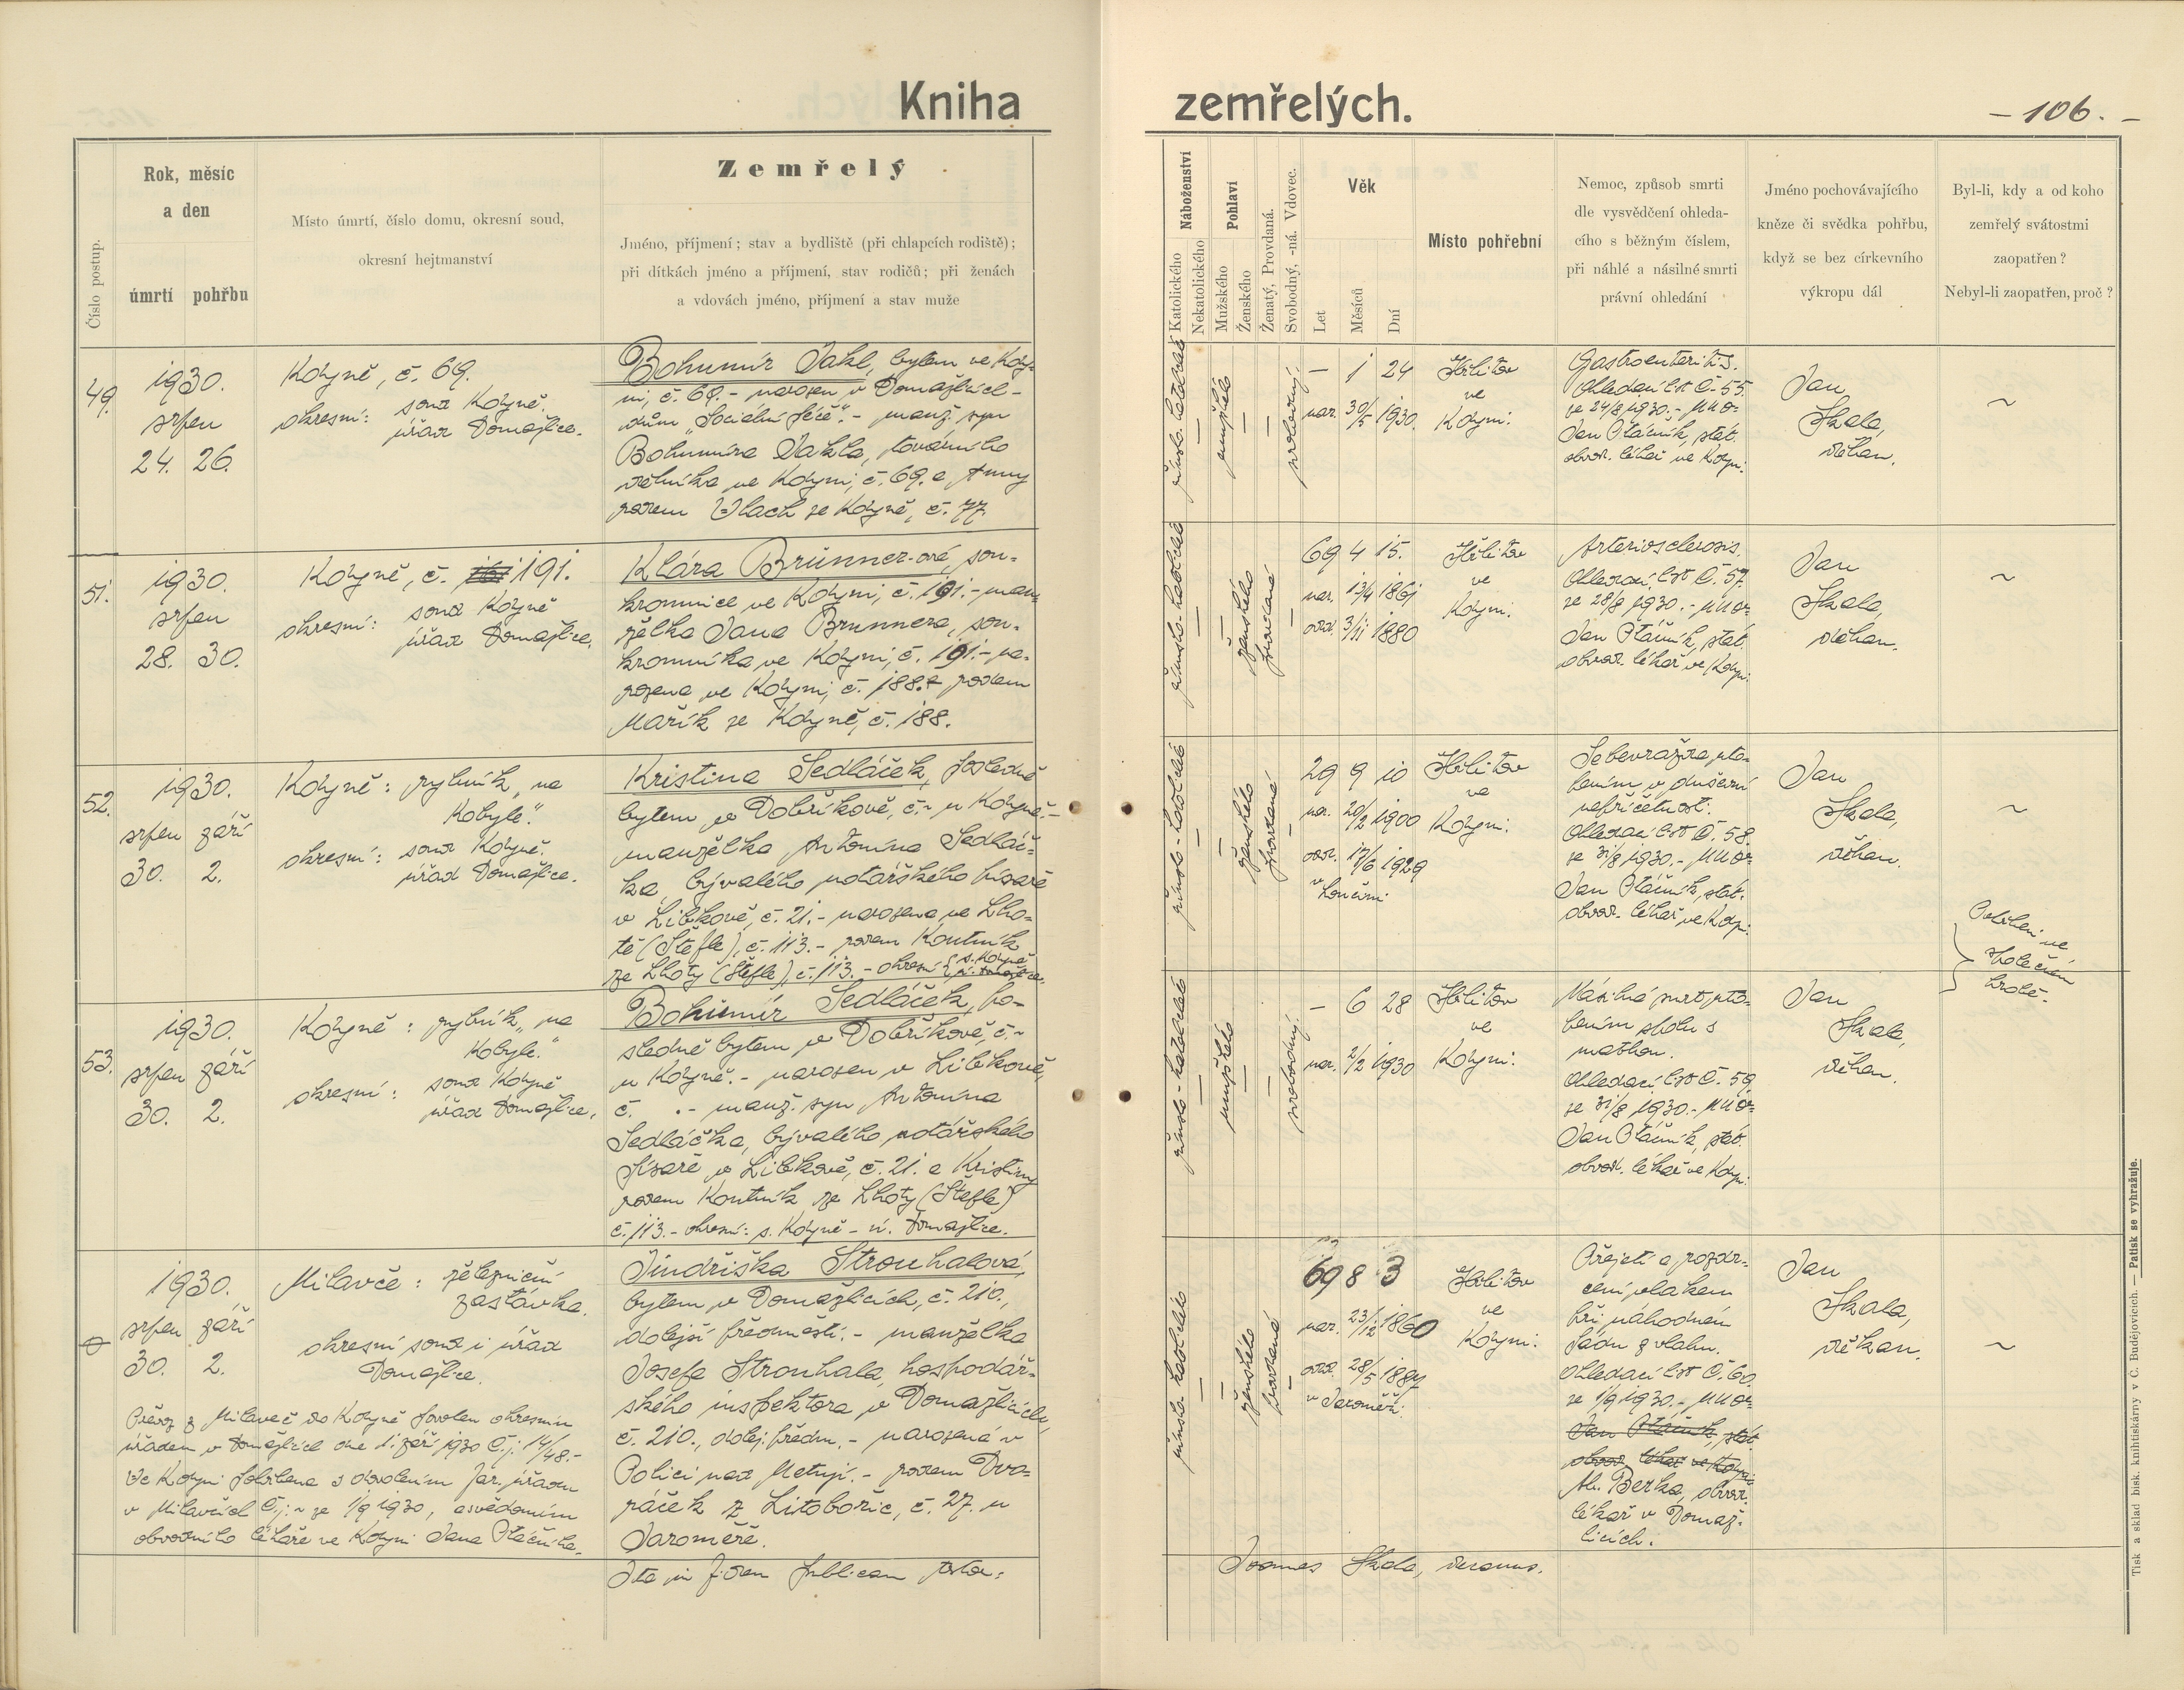 Kniha
zemřelých.
- 106. -
Číslo postup.
Rok, měsíc
a den
úmrtí pohřbu
Místo úmrtí, číslo domu, okresní soud,
okresní hejtmanství
Zemřelý
Jméno, příjmení; stav a bydliště (při chlapcích rodiště);
při dítkách jméno a příjmení, stav rodičů; při ženách
a vdovách jméno, příjmení a stav muže
Náboženství
Katolického
Nekatolického
Pohlaví
Mužského
Ženského
Ženatý, Provdaná.
Svobodný, -ná. Vdovec.
Věk
Let
Měsíců
Dní
Místo pohřební
Nemoc, způsob smrti
dle vysvědčení ohleda-
cího s běžným číslem,
při náhlé a násilné smrti
právní ohledání
Jméno pochovávajícího
kněze či svědka pohřbu,
když se bez církevního
výkropu dál
Byl-li, kdy a od koho
zemřelý svátostmi
zaopatřen?
Nebyl-li zaopatřen, proč?
49.
1930.
srpen
24. 26.
Kdyně, č. 69.
okresní: soud Kdyně.
úřad Domažlice.
Bohumír Jakl, bytem ve Kdy-
ni, č. 69. - narozen v Domažlicích -
dům „Sociální péče“. - manž. syn
Bohumíra Jakla, továrního
dělníka ve Kdyni, č. 69. a Anny
rodem Vlach ze Kdyně, č. 77.
mužské
svobodný.
- 1 24
nar. 30/5 1930.
Hřbitov
ve
Kdyni.
Gastroenteritis.
Ohledací list č. 55.
ze 24/8 1930. - MUDr
Jan Ptáčník, stát.
obvod. lékař ve Kdyni.
Jan
Skala,
děkan.
~
51.
1930.
srpen
28. 30.
Kdyně, č. 191.
okresní: soud Kdyně
úřad Domažlice.
Klára Brunner-ová, sou-
kromnice ve Kdyni, č. 191. - man-
želka Jana Brunnera, sou-
kromníka ve Kdyni, č. 191. - na-
rozena ve Kdyni, č. 188. rodem
Mařík ze Kdyně, č. 188.
ženského
provdaná
69 4 15.
nar. 13/4 1861
odd. 3/11 1880
Hřbitov
ve
Kdyni.
Arteriosclerosis.
Ohledací list č. 57.
ze 28/8 1930. - MUDr
Jan Ptáčník, stát.
obvod. lékař ve Kdyni.
Jan
Skala,
děkan.
~
52.
1930.
srpen září
30. 2.
Kdyně: rybník „na
Kobyle“.
okresní: soud Kdyně.
úřad Domažlice.
Kristina Sedláček, posledně
bytem v Dobříkově, č. ~ u Kdyně. -
manželka Antonína Sedláč-
ka, bývalého notářského písaře
v Libkově, č. 21. - narozena ve Lho-
tě (Štefle), č. 113. - rodem Koutník
ze Lhoty (Štefle), č. 113. - okresní: s. Kdyně
ú. Domažlice.
ženského
provdaná
29 9 10
nar. 20/2 1900
odd. 17/6 1929
v Loučimi
Hřbitov
ve
Kdyni.
Sebevražda, uto-
pením v duševní
nepříčetnosti.
Ohledací list č. 58.
ze 31/8 1930. - MUDr
Jan Ptáčník, stát.
obvod. lékař ve Kdyni.
Jan
Skala,
děkan.
~
Pohřbeni ve
společném
hrobě.
53.
1930.
srpen září
30. 2.
Kdyně: rybník „na
Kobyle.“
okresní: soud Kdyně
úřad Domažlice.
Bohumír Sedláček, po-
sledně bytem v Dobříkově, č. ~
u Kdyně. - narozen v Libkově,
č. . - manž. syn Antonína
Sedláčka, bývalého notářského
písaře v Libkově, č. 21. a Kristiny
rodem Koutník ze Lhoty (Štefle)
č. 113. - okresní: s. Kdyně - ú. Domažlice.
mužského
svobodný.
- 6 28
nar. 2/2 1930
Hřbitov
ve
Kdyni.
Násilná smrt, uto-
pením spolu s
matkou.
Ohledací list č. 59.
ze 31/8 1930. - MUDr
Jan Ptáčník, stát.
obvod. lékař ve Kdyni.
Jan
Skala,
děkan.
1930.
srpen září
30. 2.
Milavče: železniční
zastávka.
okresní soud i úřad
Domažlice.
Převoz z Milaveč do Kdyně povolen okresním
úřadem v Domažlicích dne 1. září 1930 č. j. 14/48. -
Ve Kdyni pohřbena s dovolením far. úřadu
v Milavčích č. j. ~ ze 1/9 1930, a svědomím
obvodního lékaře ve Kdyni Jana Ptáčníka.
Jindřiška Strouhalová,
bytem v Domažlicích, č. 210.,
dolejší předměstí. - manželka
Josefa Strouhala, hospodář-
ského inspektora v Domažlicích,
č. 210., dolej. předm. - narozená v
Polici nad Metují. - rodem Dvo-
ráček z Litobořic, č. 27. u
Jaroměře.
ženského
provdaná
69 8 3
nar. 23/12 1860
odd. 28/5 1887
v Jaroměři.
Hřbitov
ve
Kdyni.
Přejetí a rozdr-
cení vlakem
při náhodném
pádu z vlaku.
Ohledací list č. 60.
ze 1/9 1930. - MUDr
Jan Ptáčník, stát.
obvod. lékař ve Kdyni
Al. Berka, obvod.
lékař v Domaž-
licích.
Jan
Skala,
děkan.
~
Ita in fidem publicam testor:
Joannes Skala, decanus.
Tisk a sklad bisk. knihtiskárny v Č. Budějovicích. — Patisk se vyhražuje.